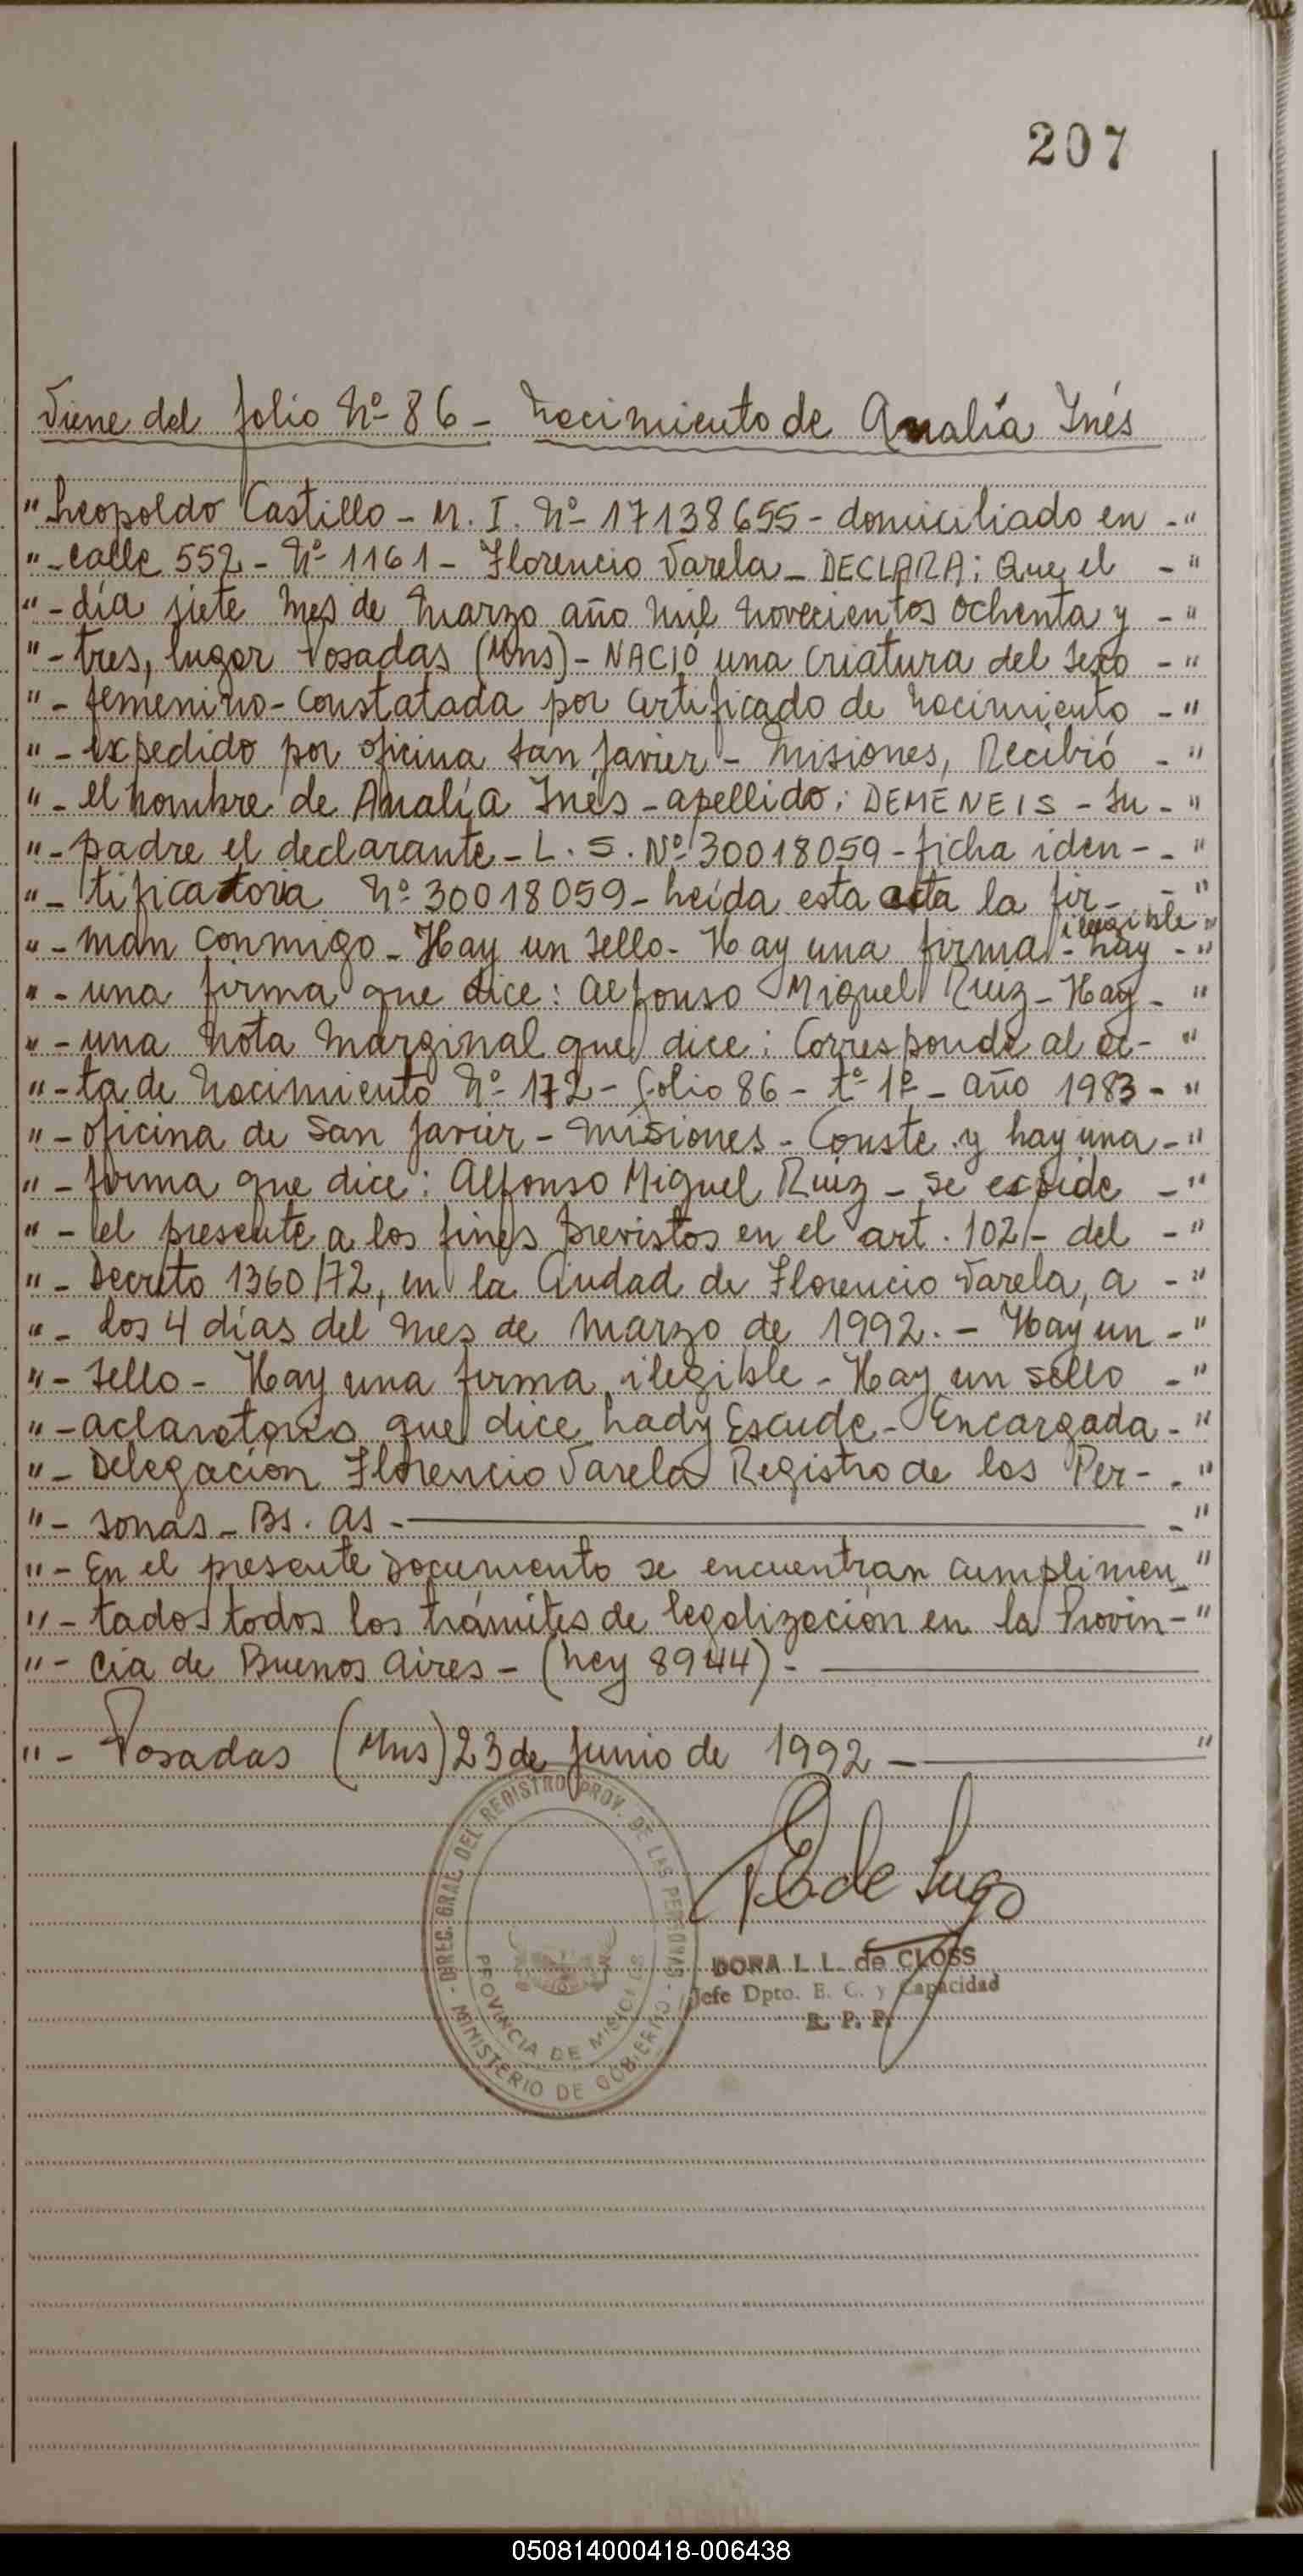 207
Viene del folio Nº 86 - Nacimiento de Analía Inés
"Leopoldo Castillo - M. I. Nº 17138655 - domiciliado en - "
" - calle 552 - Nº 1161 - Florencio Varela - DECLARA: Que el - "
" - día siete mes de Marzo año mil novecientos ochenta y - "
" - tres, lugar Posadas (Mns) - NACIÓ una criatura del sexo - "
" - femenino - constatada por certificado de nacimiento - "
" - expedido por oficina San Javier - Misiones, Recibió - "
" - el nombre de Analía Inés - apellido: DEMENEIS - Su - "
" - padre el declarante - L. S. Nº 30018059 - ficha iden - - "
" - tificatoria Nº 30018059 - Leída esta acta la fir - - "
ilegible
" - man conmigo - Hay un sello - Hay una firma - hay - "
" - una firma que dice: Alfonso Miguel Ruiz - Hay - "
" - una nota marginal que dice: Corresponde al ac - "
" - ta de nacimiento Nº 172 - folio 86 - tº 1º - año 1983 - "
" - oficina de San Javier - Misiones - Conste y hay una - "
" - firma que dice: Alfonso Miguel Ruiz - se expide - "
" - el presente a los fines previstos en el art. 102 - del - "
" - Decreto 1360/72, en la Ciudad de Florencio Varela, a - "
" - los 4 días del mes de marzo de 1992. - Hay un - "
" - sello - Hay una firma ilegible - Hay un sello - "
" - aclaratorio que dice Lady Escude - Encargada - "
" - Delegación Florencio Varela Registro de las Per - - "
" - sonas - Bs. As - - "
" - En el presente Documento se encuentran cumplimen - "
" - tados todos los trámites de legalización en la Provin - "
" - cia de Buenos Aires - (Ley 8944) -
" - Posadas (Mns) 23 de Junio de 1992 - "
DIREC. GRAL. DEL REGISTRO PROV. DE LAS PERSONAS - MINISTERIO DE GOBIERNO -
PROVINCIA DE MISIONES
DORA L. L. de CLOSS
Jefe Dpto. E. C. y Capacidad
R. P. P.
050814000418-006438